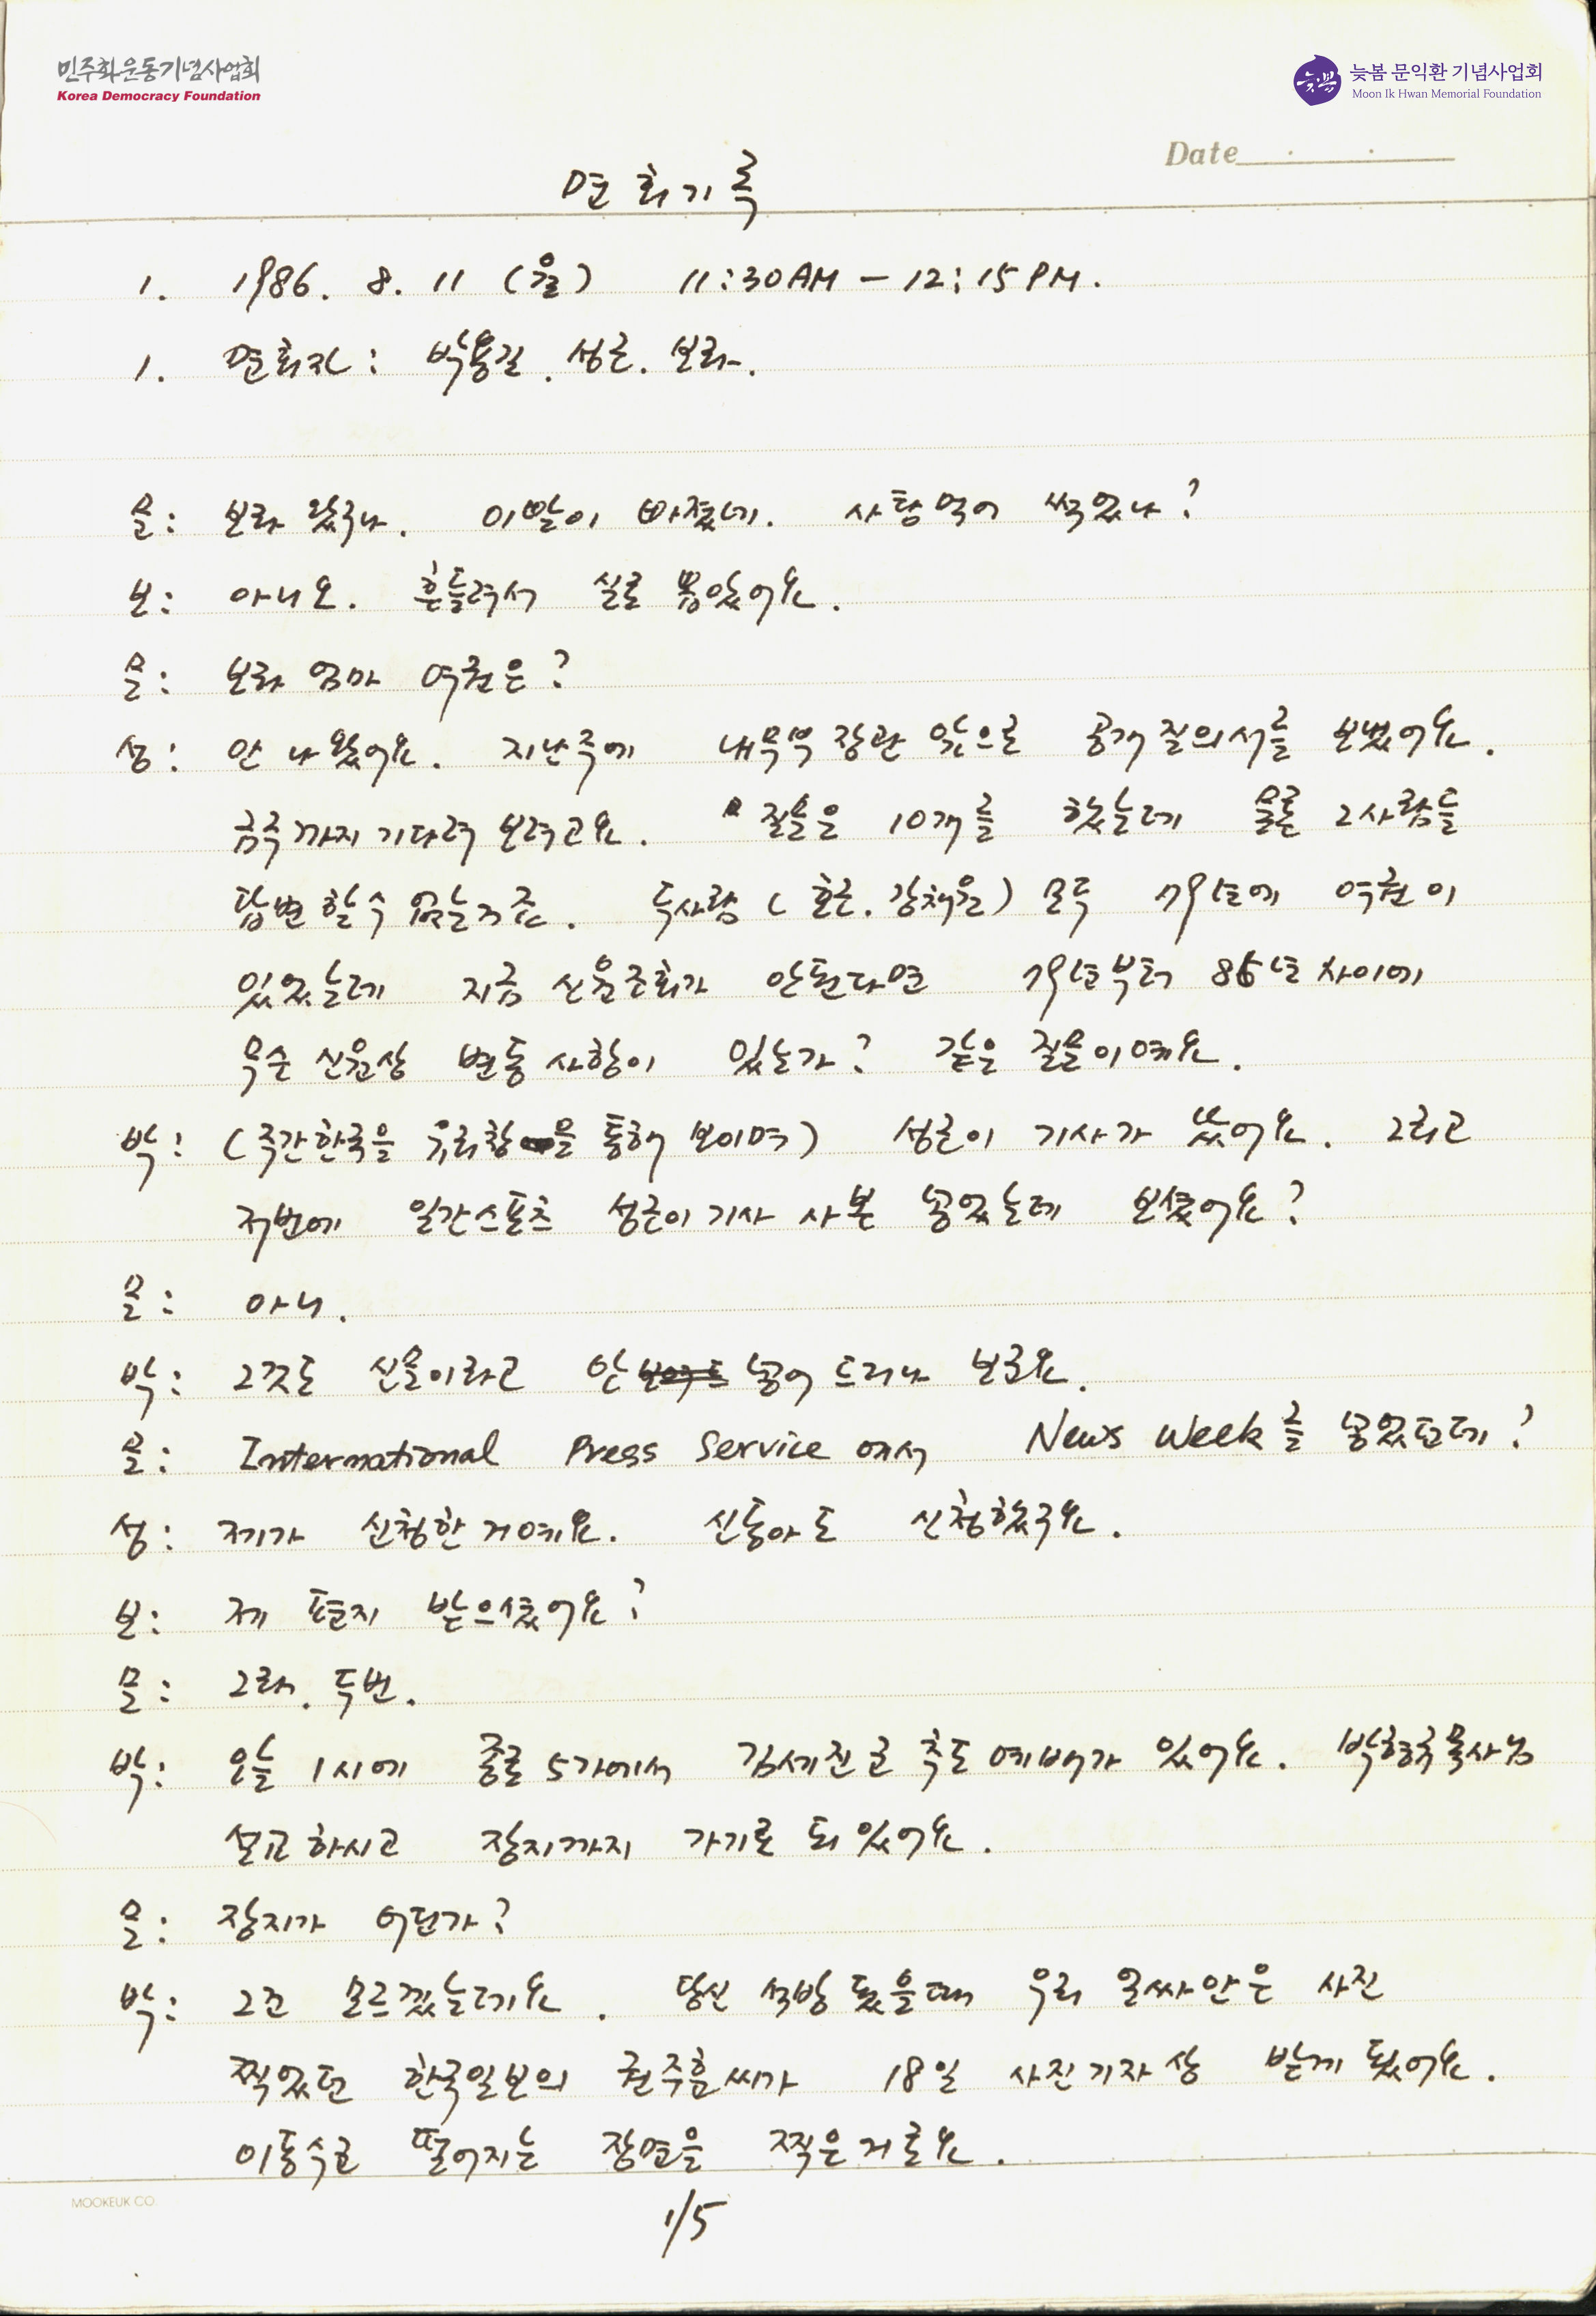 민주화운동기념사업회
Korea Democracy Foundation
늦봄
늦봄 문익환 기념사업회
Moon Ik Hwan Memorial Foundation
Date
면회기록
1. 1986. 8. 11 (월) 11:30AM - 12:15PM.
1. 면회자: 박용길. 성근. 보라.
문: 보라 왔구나. 이빨이 빠졌네. 사탕먹어 썩었나?
보: 아니오. 흔들려서 실로 뽑았어요.
문: 보라 엄마 여권은?
성: 안 나왔어요. 지난주에 내무부장관 앞으로 공개질의서를 보냈어요.
금주까지 기다려 보려고요. 질문은 10개를 했는데 물론 그사람들
답변할 수 없는거죠. 두사람 (호근. 강채원) 모두 79년에 여권이
있었는데 지금 신원조회가 안된다면 79년부터 86년 사이에
무슨 신원상 변동사항이 있는가? 같은 질문이예요.
박: (주간한국을 유리창을 통해 보이며) 성근이 기사가 났어요. 그리고
저번에 일간스포츠 성근이 기사 사본 넣었는데 보셨어요?
문: 아니.
박: 그것도 신문이라고 안 넣어 드리나 보군요.
문: International Press Service 에서 News Week를 넣었던데?
성: 제가 신청한거예요. 신동아도 신청했구요.
보: 제 편지 받으셨어요?
문: 그래. 두번.
박: 오늘 1시에 종로5가에서 김세진군 추도예배가 있어요. 박형규목사님
설교하시고 장지까지 가기로 되있어요.
문: 장지가 어딘가?
박: 그건 모르겠는데요. 당신 석방됐을때 우리 얼싸안은 사진
찍었던 한국일보의 권주훈씨가 18일 사진기자상 받게 됐어요.
이동수군 떨어지는 장면을 찍은거로요.
MOOKEUK CO.
1/5